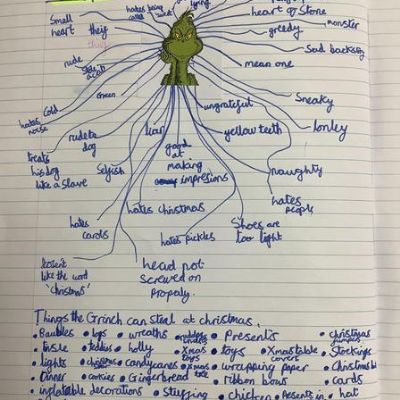 hates being
called
heart of Stone
monster
Small
heart
they
greedy
Sad backstory
rude
Stole
a cat
mean one
Green
Cold
hates
noise
ungrateful
Sneaky
rude to
dog
liar
yellow teeth
lonley
treats
his dog
like a slave
Selfish
good
at
making
impresions
naughty
hates
people
hates christmas
hates
cards
hates pickles
Shoes are
too tight
doesent
like the word
"christmas"
head not
Screwed on
Properly.
Things the Grinch can steal at christmas.
• Baubles • logs • wreaths • Presents • christmas jumpers
• tinsle • teddies • holly • Xmas toys • toys • Xmas table covers • Stockings
• lights • candycanes • wrapping paper • Christmas
• Dinner • cookies • Gingerbread • ribbon bows • cards
• inflatable decorations • stuffing • chicken • presents in • hat